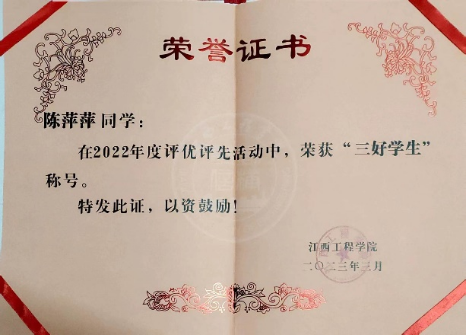 荣誉证书
陈萍萍 同学：
在2022年度评优评先活动中，荣获“三好学生”
称号。
特发此证，以资鼓励！
江西工程学院
二〇二三年三月